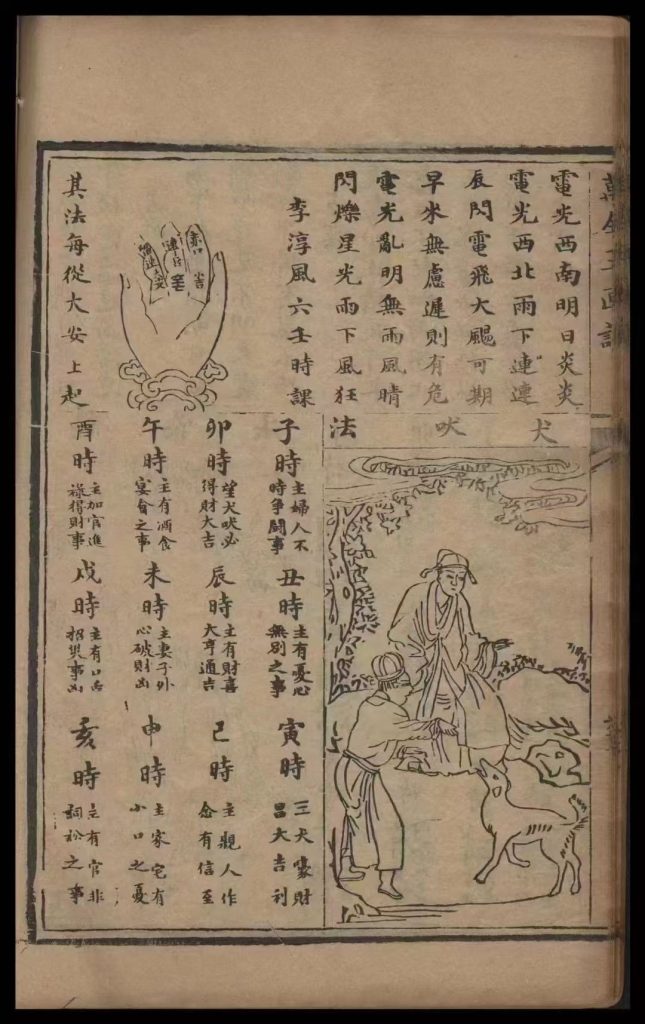 電光西南明日炎炎
電光西北雨下連連
辰閃電飛大颶可期
早來無慮遲則有危
電光亂明無雨風晴
閃爍星光雨下風狂
李淳風六壬時課
赤口
小吉
大安
其法每從大安上起
犬吠法
子時
主婦人不
時爭鬪事
丑時
主有憂心
無別之事
寅時
三犬財
昌大吉利
卯時
望犬吠必
得財大吉
辰時
主有財喜
大亨通吉
巳時
主親人作
念有信至
午時
主有酒食
宴會之事
未時
主妻子外
心破財凶
申時
主家宅有
小口之憂
酉時
主加官進
祿得財事
戌時
主有口舌
招災事凶
亥時
主有官非
詞訟之事